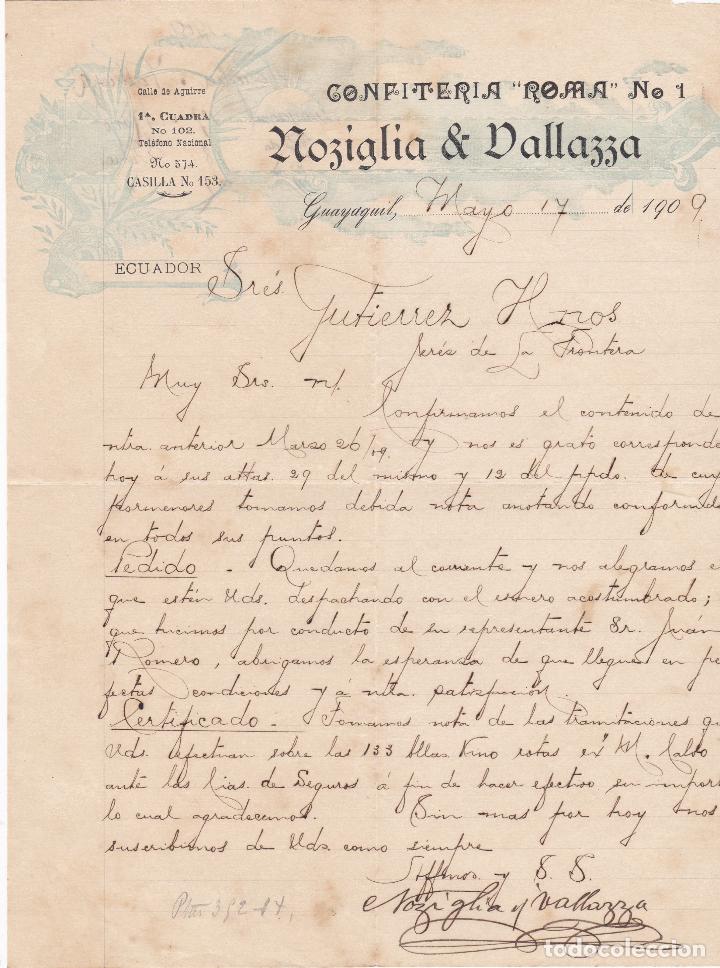 Calle de Aguirre
1ª. CUADRA
No 102.
Teléfono Nacional
No 574.
CASILLA No 153.
ECUADOR
CONFITERIA "ROMA" No 1
Noziglia & Vallazza
Guayaquil, Mayo 17 de 1909
Srés.
Gutierrez Hnos
Jeréz de La Frontera
Muy Srs. n/.
Confirmamos el contenido de
ntra. anterior Marzo 26/09. y nos es grato corresponde
hoy á sus attas. 29 del mismo y 12 del ppdo. de cuy
pormenores tomamos debida nota anotando conformid
en todos sus puntos.
Pedido - Quedamos al corriente y nos alegramos e
que estén Uds. despachando con el esmero acostumbrado;
que hicimos por conducto de su representante Sr. Juán
Romero, abrigamos la esperanza de que llegue en pe
fectas condiciones y á ntra. satisfacción.
Certificado - Tomamos nota de las tramitaciones qu
Uds. efectuan sobre las 133 bllas Vino rotas ex M. Calvo
ante las Cias. de Seguros á fin de hacer efectivo su import
lo cual agradecemos. Sin mas por hoy nos
suscribimos de Uds. como siempre
Affmos. y S. S.
Noziglia y Vallazza
Ptas 392-84,
todocoleccion